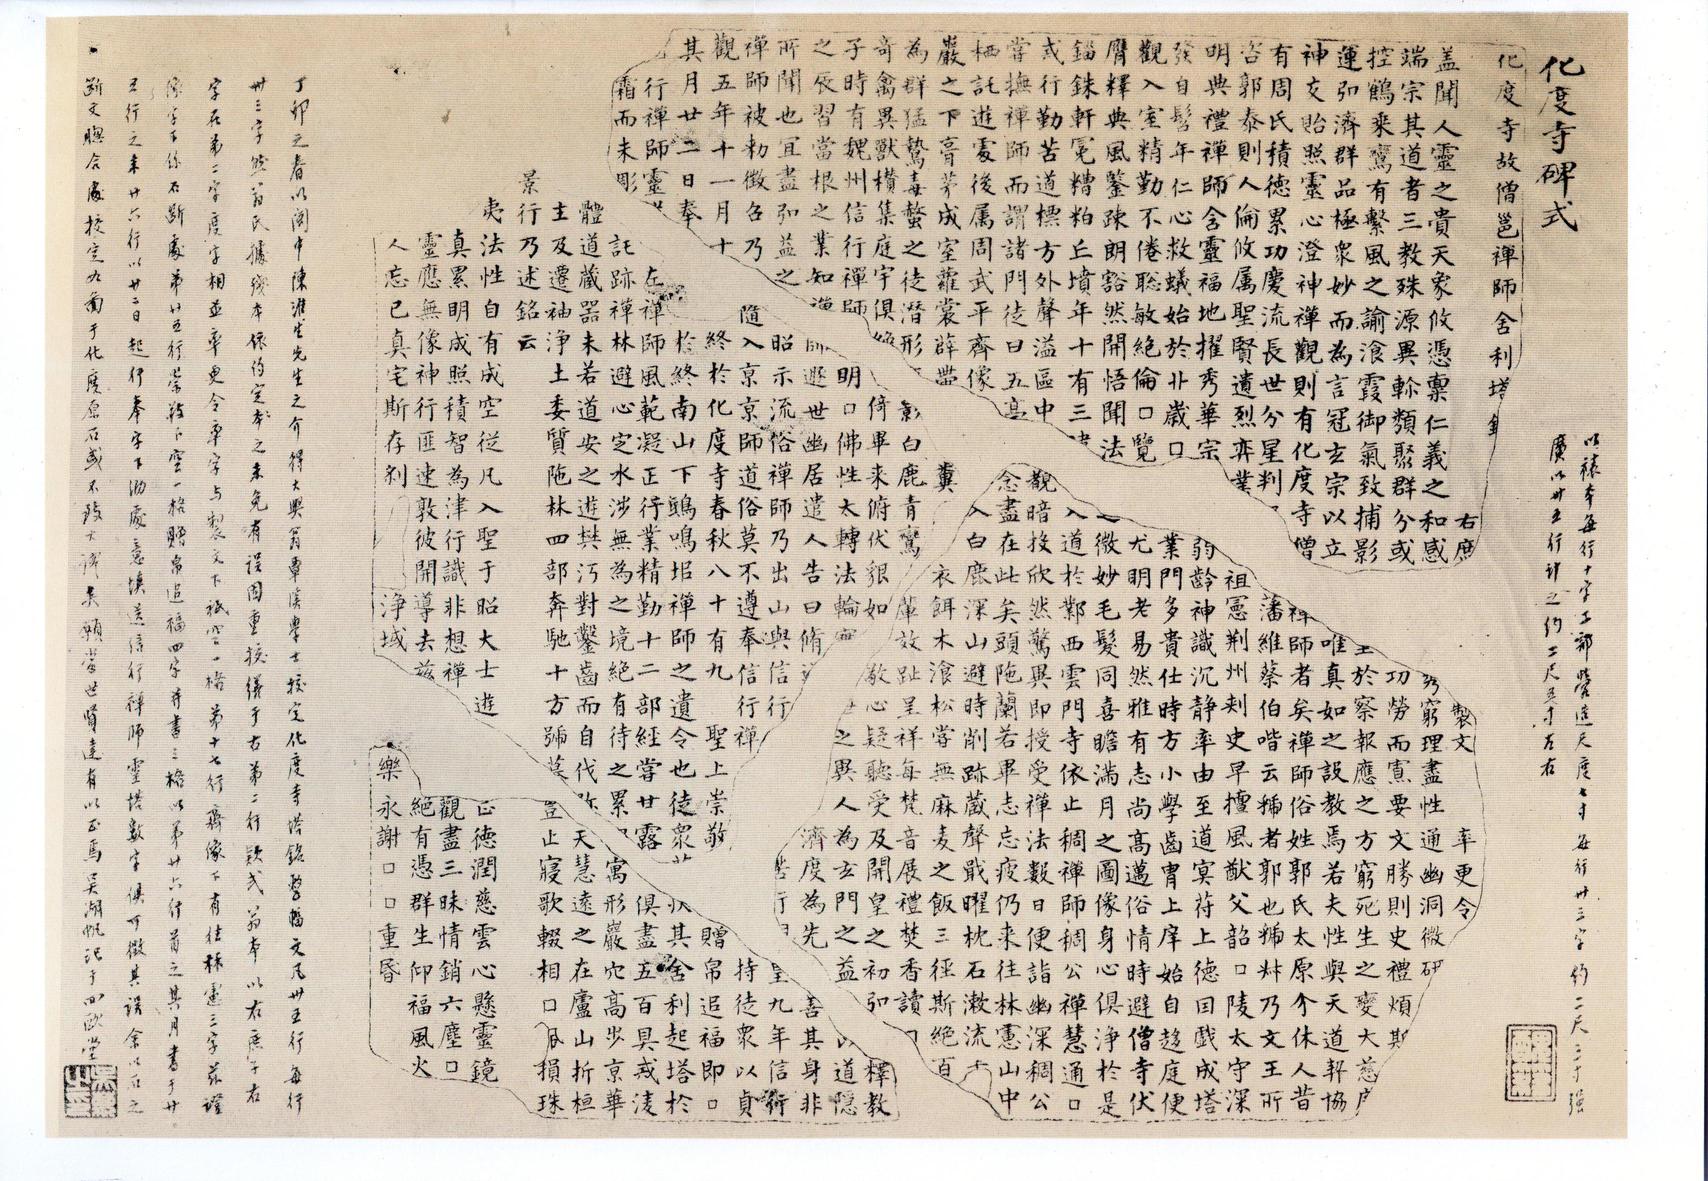 化度寺碑式
以裱本每行十字工部營造尺度七寸每行卅三字約二尺三寸強
廣以卅五行計之約二尺五寸左右
化度寺故僧邕禪師舍利塔
右庶
製文
率更令
蓋聞人靈之貴天象攸憑稟仁義之和感
窮理盡性通幽洞微研
端宗其道者三教殊源異軫類聚群分或
功勞而寡要文勝則史禮煩斯
控鶴乘鸞有繫風之諭飡霞御氣致捕影
於察報應之方窮死生之變大慈
運弘濟群品極衆妙而為言冠玄宗以立
唯真如之設教焉若夫性與天道契協
神交貽照靈心澄神禪觀則有化度寺僧
禪師者矣禪師俗姓郭氏太原介休人昔
有周氏積德累功慶流長世分星判
蕃維蔡伯喈云虢者郭也虢叔乃文王所
咨郭泰則人倫攸属聖賢遺烈弈業
祖憲荆州刾史早擅風猷父韶口陵太守深
明典禮禪師含靈福地擢秀華宗
弱齡神識沉静率由至道冥苻上德因戲成塔
發自髫年仁心救蟻始於丱歲口
業門多貴仕時方小學齒胄上庠始自趍庭便
觀入室精勤不倦聡敏絶倫口覽
尤明老易然雅有志尚高邁俗情時避僧寺伏
膺釋典風鑒踈朗豁然開悟聞法
微妙毛髮同喜瞻滿月之圖像身心俱浄於是
錙銖軒冕糟粕丘墳年十有三
入道於鄴西雲門寺依止稠禪師稠公禪慧通口
或行勤苦道標方外聲溢區中
觀暗投欣然驚異即授受禪法數日便詣幽深稠公
嘗撫禪師而謂諸門徒曰五
念盡在此矣頭陁蘭若畢志忘疲仍来往林慮山中
栖託遊處後属周武平齊像
入白鹿深山避時削跡蔵聲戢曜枕石漱流
巖之下膏茅成室蘿裳薜
糞
衣餌木飡松嘗無麻麦之飯三徑斯絶百
為群猛鷙毒螫之徒潛形
影白鹿青鸞
效趾呈祥每梵音展禮焚香讀口
奇禽異獸横集庭宇俱
倚畢来俯伏貌如
敬心疑聽受及開皇之初弘
釋教
子時有魏州信行禪師
明口佛性大轉法輪
之異人為玄門之益
道隱
之辰習當根之業知
師遯世幽居遣人告曰脩
濟度為先
善其身非
所聞也宜盡弘益之
昭示流俗禪師乃出山與信行
皇九年信行
禪師被勑徵召乃
隨入京京師道俗莫不遵奉信行禪
持徒衆以貞
觀五年十一月十
終於化度寺春秋八十有九
聖上崇敬
贈帛追福即口
其月廿二日奉
於終南山下鵄鳴堆禪師之遺令也徒衆
其舍利起塔於
行禪師靈
在禪師風範凝正行業精勤十二部經嘗廿露
俱盡五百具戒淩
霜而未彫
託跡禪林避心定水涉無為之境絶有待之累
寓形巖穴高步京華
體道蔵器未若道安之遊樊沔對鑿齒而自代
天慧遠之在廬山折桓
主及遷袖浄土委質陁林四部奔馳十方號
豈止寢歌輟相口
損珠
景行乃述銘云
夷法性自有成空從凡入聖于昭大士遊
正德潤慈雲心懸靈鏡
真累明成照積智為津行識非想禪
觀盡三昧情銷六塵口
靈應無像神行匪速敦彼開導去兹
絶有憑群生仰福風火
人忘已真宅斯存刹
浄域
樂永謝口口重昏
丁卯之春以閩中陳淮生先生之介得大興翁覃溪學士校定化度寺塔銘整幅文凡卅五行每行
卅三字然翁氏據殘本依約定式之未免有誤因重按繕于右第二行款式翁本以右庶子右
字在第二字度字相並率更令率字与製文下祗空一格第十七行齊像下有往林慮三字
像字下係石斷處第廿五行崇敬下空一格贈帛追福四字并書三格以第廿六行首之其月書于廿
五行之末廿六行以廿二日起行奉字下泐處意填送信行禪師靈塔數字俱可徵其誤余以石之
斷文聯合處校定九圖于化度原石或不致大謬矣願當世賢達有以正焉吳湖帆記于四歐堂